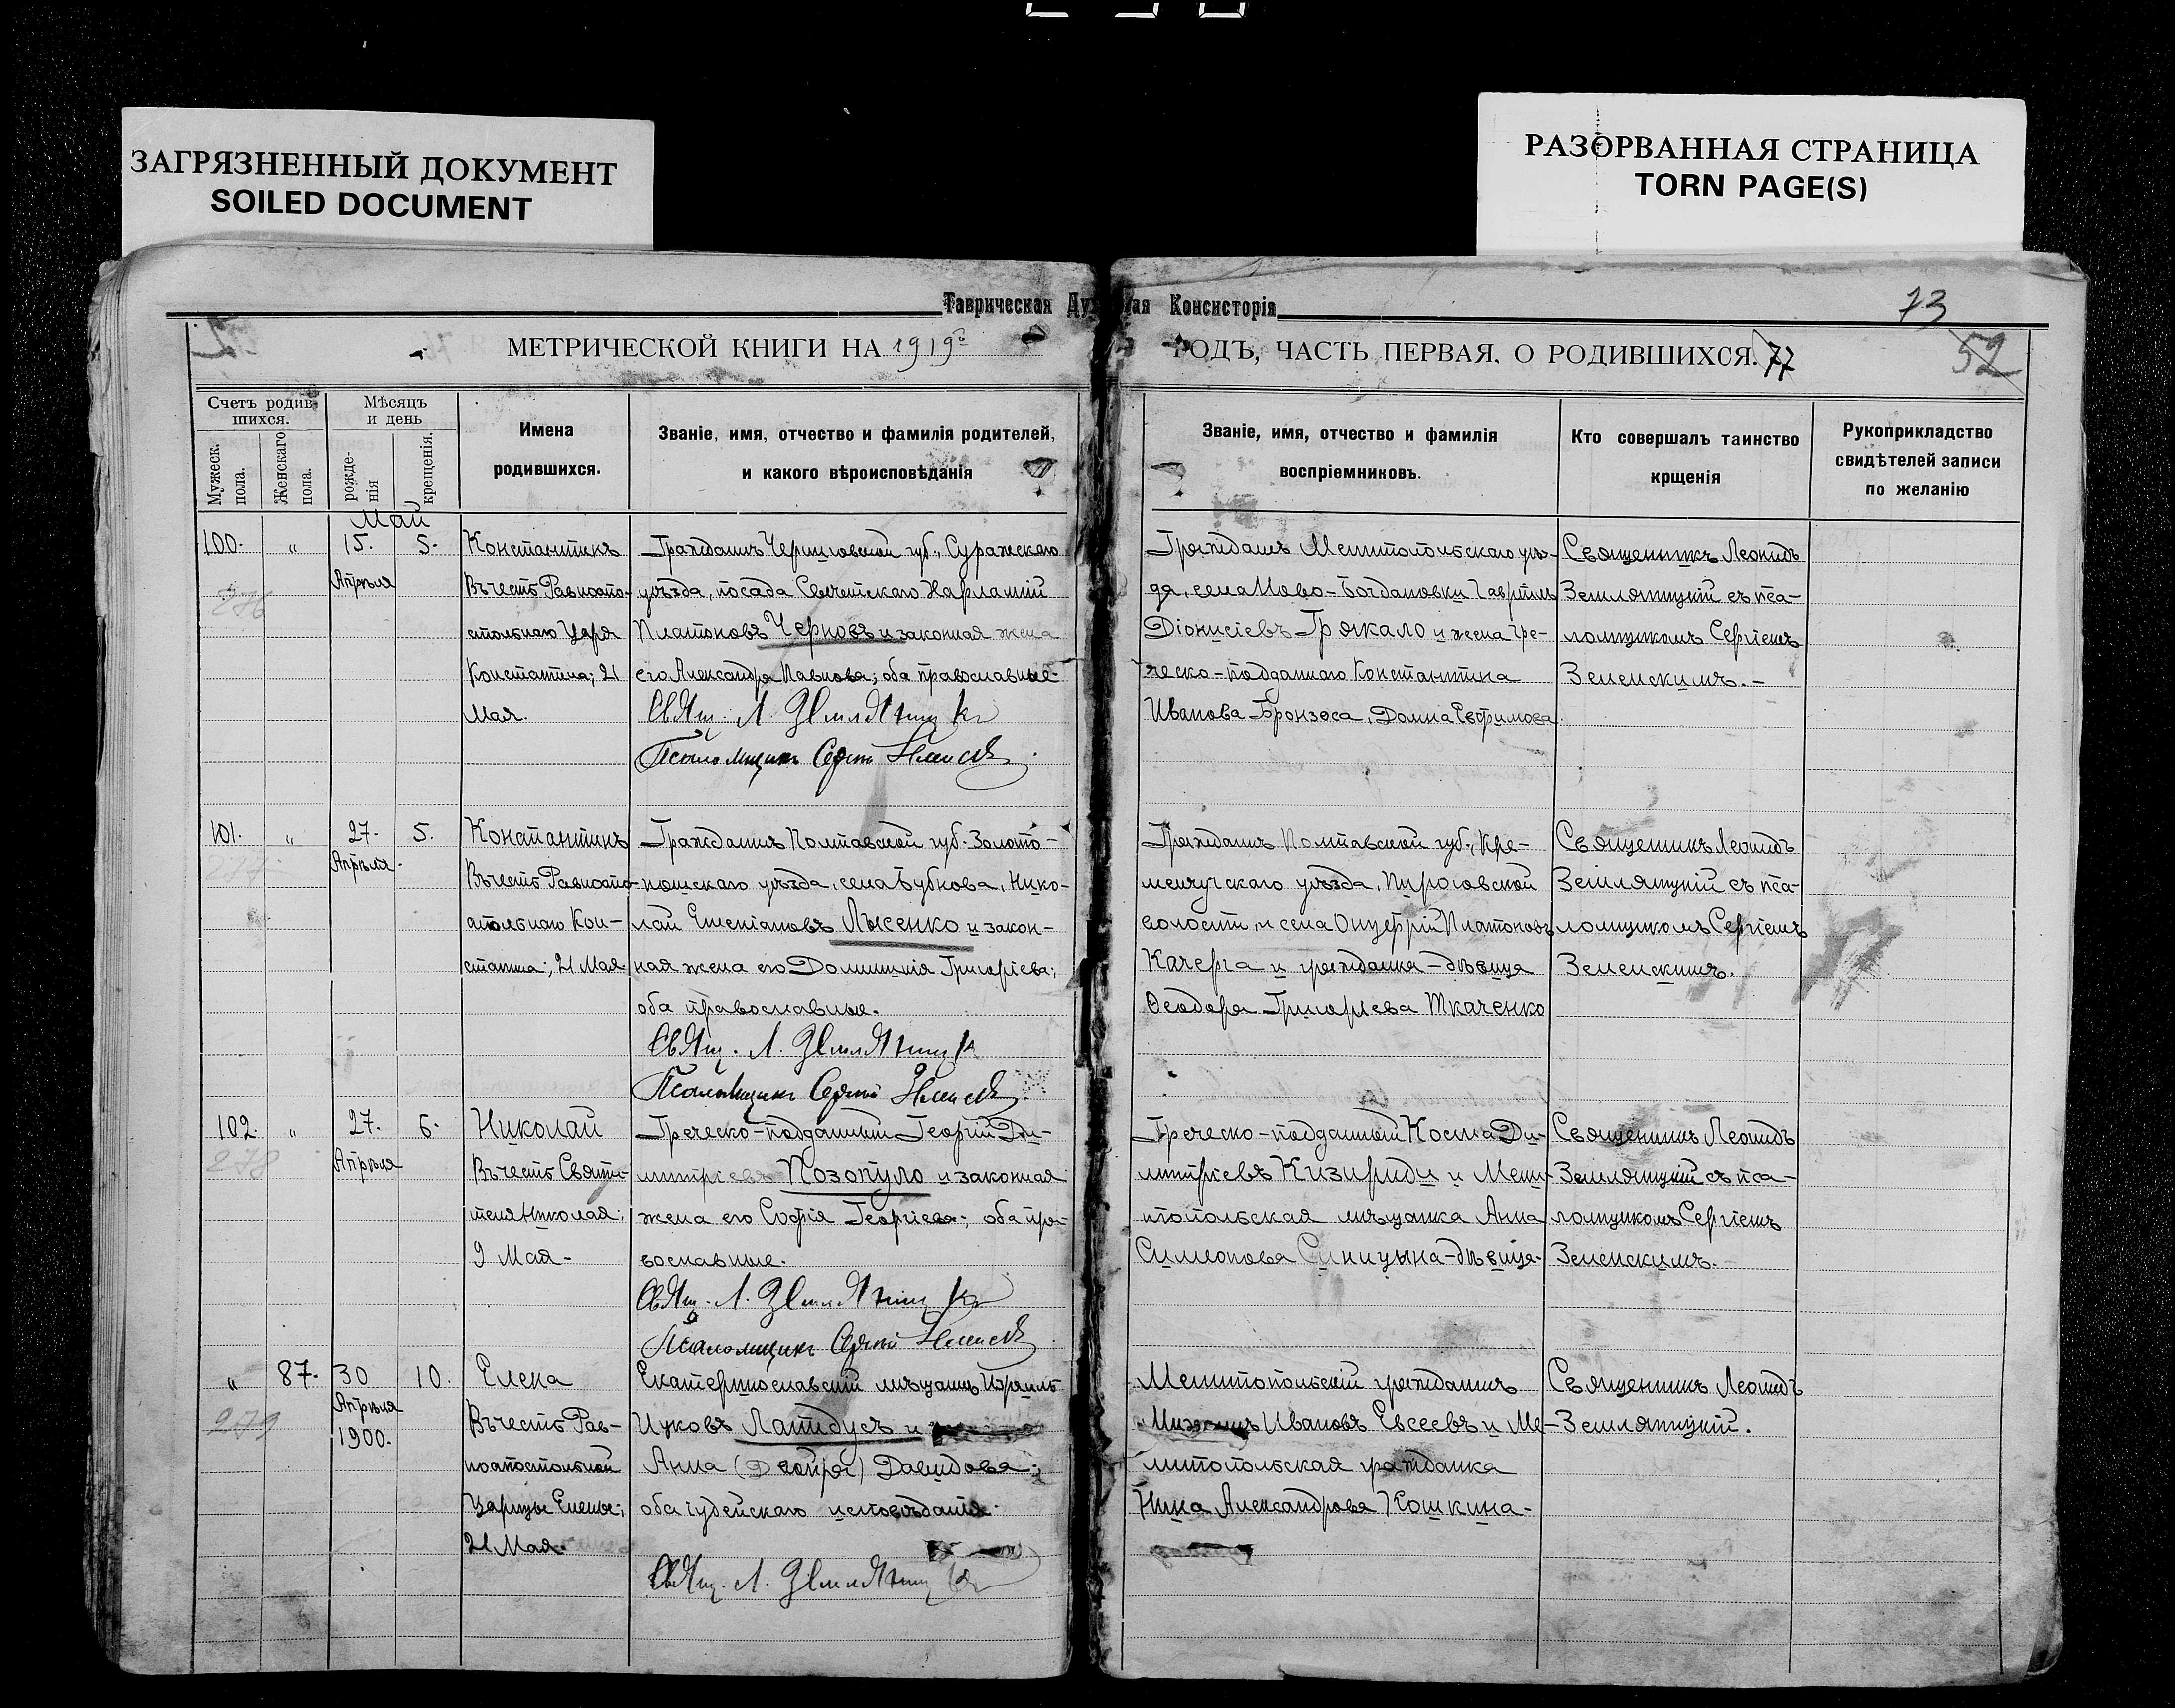 ЗАГРЯЗНЕННЫЙ ДОКУМЕНТ
SOILED DOCUMENT
РАЗОРВАННАЯ СТРАНИЦА
TORN PAGE(S)
Таврическая Ду ная Консисторія
73
МЕТРИЧЕСКОЙ КНИГИ НА 1919й
ГОДЪ, ЧАСТЬ ПЕРВАЯ, О РОДИВШИХСЯ. 77
52
Счетъ родив-
шихся.
Мужеск. пола.
Женскаго пола.
Мѣсяцъ
и день
рожде-
нія
крещенія.
Имена
родившихся.
Званіе, имя, отчество и фамилія родителей,
и какого вѣроисповѣданія
Званіе, имя, отчество и фамилія
воспріемниковъ.
Кто совершалъ таинство
крщенія
Рукоприкладство
свидѣтелей записи
по желанію
Май
100. " 15. 5.
Апрѣля
276
Константинъ
Въ честь Равноапо-
стольнаго Царя
Константина; 21
Мая.
Гражданинъ Черниговской губ., Суражскаго
уѣзда, посада Харлампій
Платоновъ Черновъ и законная жена
его Александра Павлова; оба православные.
Свящ. Л. Землятицкій
Псаломщикъ Сергій Зеленскій
Гражданинъ Мелитопольскаго уѣз-
да, села Ново-Богдановки Гавріилъ
Діонисіевъ Грякало и жена гре-
ческо-подданнаго Константина
Иванова Бронзоса, Домна Евфимова.
Священникъ Леонидъ
Землятицкій съ пса-
ломщикомъ Сергіемъ
Зеленскимъ.-
101. " 27. 5.
Апрѣля.
277
Константинъ
Въ честь Равноапо-
стольнаго Кон-
стантина; 21 Мая.
Гражданинъ Полтавской губ. Золото-
ношскаго уѣзда, села Бубнова, Нико-
лай Емеліановъ Лысенко и закон-
ная жена его Домникія Григоріева;
оба православные.
Свящ. Л. Землятицкій
Псаломщикъ Сергій Зеленскій
Гражданинъ Полтавской губ., Кре-
менчугскаго уѣзда, Пироговской
волости и села Онуфрій Платоновъ
Качерга и гражданка-дѣвица
Ѳеодора Григоріева Ткаченко
Священникъ Леонидъ
Землятицкій съ пса-
ломщикомъ Сергіемъ
Зеленскимъ.
102. " 27. 6.
Апрѣля
278
Николай
Въ честь Святи-
теля Николая;
9 Мая-
Греческо-подданный Георгій Ди-
митріевъ Позопуло и законная
жена его Софія Георгіева; оба пра-
вославные.
Свящ. Л. Землятицкій
Псаломщикъ Сергій Зеленскій
Греческо-подданный Косма Ди-
митріевъ Кизириди и Мели-
топольская мѣщанка Анна
Симонова Синицына-дѣвица.
Священникъ Леонидъ
Землятицкій съ пса-
ломщикомъ Сергіемъ
Зеленскимъ.-
" 87. 30 10.
Апрѣля
1900.
279
Елена
Въ честь Рав-
ноапостольной
Царицы Елены;
21 Мая.
Екатеринославскій мѣщанинъ Израиль
Ицковъ Лапидусъ и
Анна (Двойра) Давидова;
оба іудейскаго исповѣданія.
Свящ. Л. Землятицкій
Мелитопольскій гражданинъ
Ивановъ Евсеевъ и Ме-
литопольская гражданка
Нина Александрова Кошкина-
Священникъ Леонидъ
Землятицкій.